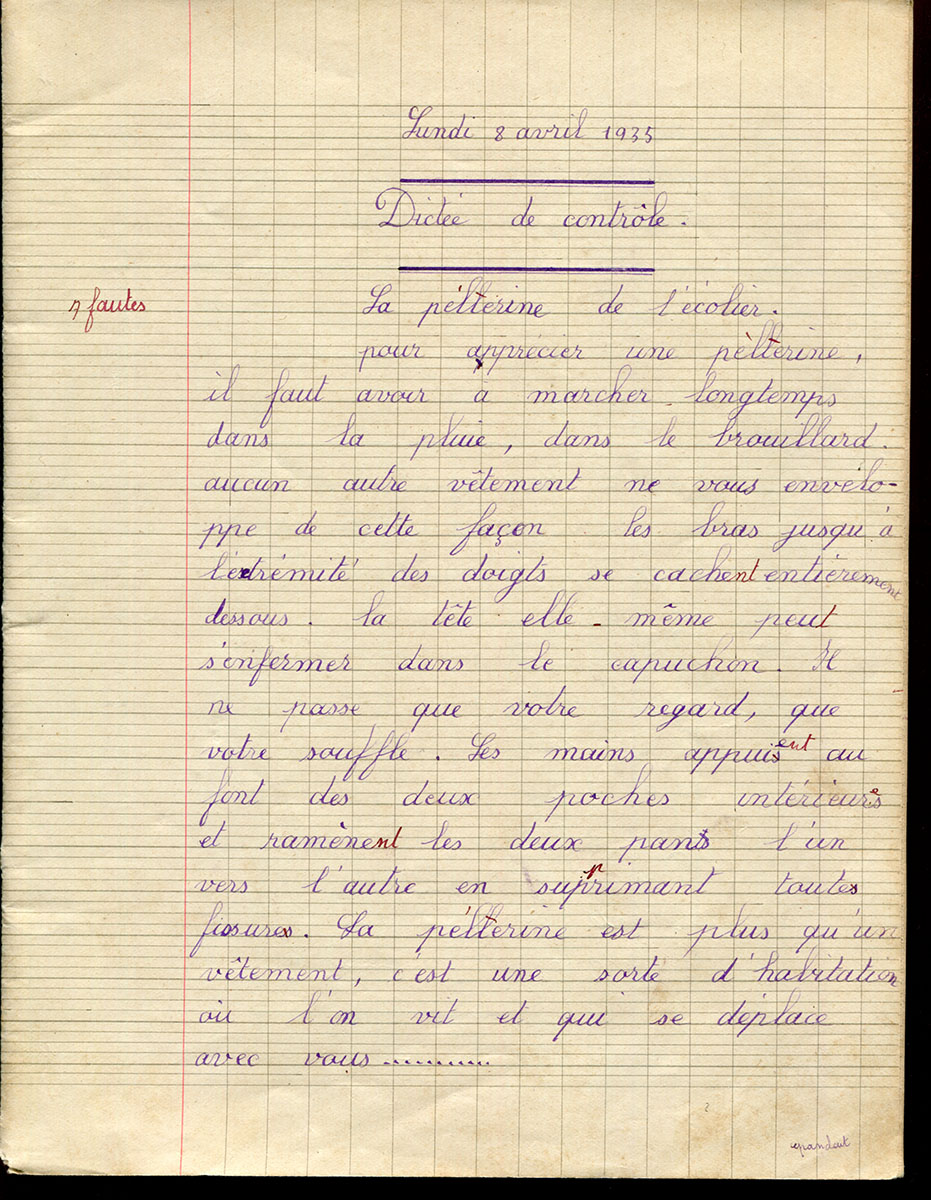 Lundi 8 avril 1935
Dictée de contrôle.
7 fautes
La péltérine de l'écolier.
pour apprécier une pèltérine,
il faut avoir à marcher longtemps
dans la pluie, dans le brouillard.
aucun autre vêtement ne vous envélo-
ppe de cette façon les bras jusqu'à
l'éxtrémité des doigts se cachent entièrement
dessous. la tête elle-même peut
s'enfermer dans le capuchon. Il
ne passe que votre regard, que
votre souffle. Les mains appuisent au
font des deux poches intérieures
et ramènent les deux pants l'un
vers l'autre en supprimant toutes
fissures. La péltérine est plus qu'un
vêtement, c'est une sorte d'habitation
où l'on vit et qui se déplace
avec vous ............